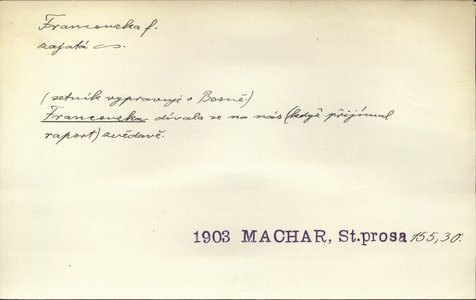 Francouzka f.
zajatá
(setník vypravuje o Bosně.)
Francouzka dívala se na nás (když přijímal
raport) zvědavě.
1903 MACHAR, St.prosa 155,30.